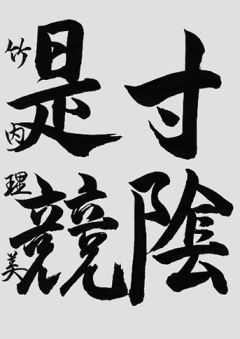 寸陰
是競
竹内理美